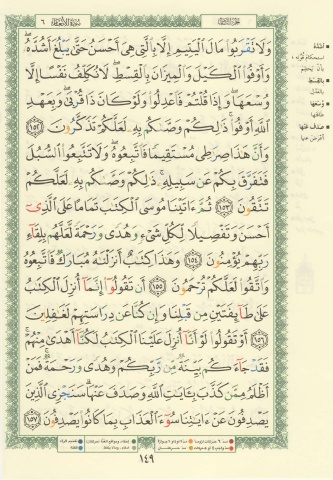 سورة الأنعام ٦
وَلَا تَقْرَبُوا۟ مَالَ ٱلْيَتِيمِ إِلَّا بِٱلَّتِى هِىَ أَحْسَنُ حَتَّىٰ يَبْلُغَ أَشُدَّهُۥ ۖ
وَأَوْفُوا۟ ٱلْكَيْلَ وَٱلْمِيزَانَ بِٱلْقِسْطِ ۖ لَا نُكَلِّفُ نَفْسًا إِلَّا
وُسْعَهَا ۖ وَإِذَا قُلْتُمْ فَٱعْدِلُوا۟ وَلَوْ كَانَ ذَا قُرْبَىٰ ۖ وَبِعَهْدِ
ٱللَّهِ أَوْفُوا۟ ۚ ذَٰلِكُمْ وَصَّىٰكُم بِهِۦ لَعَلَّكُمْ تَذَكَّرُونَ ١٥٢
وَأَنَّ هَٰذَا صِرَٰطِى مُسْتَقِيمًا فَٱتَّبِعُوهُ ۖ وَلَا تَتَّبِعُوا۟ ٱلسُّبُلَ
فَتَفَرَّقَ بِكُمْ عَن سَبِيلِهِۦ ۚ ذَٰلِكُمْ وَصَّىٰكُم بِهِۦ لَعَلَّكُمْ
تَتَّقُونَ ١٥٣ ثُمَّ ءَاتَيْنَا مُوسَى ٱلْكِتَٰبَ تَمَامًا عَلَى ٱلَّذِىٓ
أَحْسَنَ وَتَفْصِيلًا لِّكُلِّ شَىْءٍ وَهُدًى وَرَحْمَةً لَّعَلَّهُم بِلِقَآءِ
رَبِّهِمْ يُؤْمِنُونَ ١٥٤ وَهَٰذَا كِتَٰبٌ أَنزَلْنَٰهُ مُبَارَكٌ فَٱتَّبِعُوهُ
وَٱتَّقُوا۟ لَعَلَّكُمْ تُرْحَمُونَ ١٥٥ أَن تَقُولُوٓا۟ إِنَّمَآ أُنزِلَ ٱلْكِتَٰبُ
عَلَىٰ طَآئِفَتَيْنِ مِن قَبْلِنَا وَإِن كُنَّا عَن دِرَاسَتِهِمْ لَغَٰفِلِينَ
١٥٦ أَوْ تَقُولُوا۟ لَوْ أَنَّآ أُنزِلَ عَلَيْنَا ٱلْكِتَٰبُ لَكُنَّآ أَهْدَىٰ مِنْهُمْ ۚ
فَقَدْ جَآءَكُم بَيِّنَةٌ مِّن رَّبِّكُمْ وَهُدًى وَرَحْمَةٌ ۚ فَمَنْ
أَظْلَمُ مِمَّن كَذَّبَ بِـَٔايَٰتِ ٱللَّهِ وَصَدَفَ عَنْهَا ۗ سَنَجْزِى ٱلَّذِينَ
يَصْدِفُونَ عَنْ ءَايَٰتِنَا سُوٓءَ ٱلْعَذَابِ بِمَا كَانُوا۟ يَصْدِفُونَ ١٥٧
أشُدّه
بالقِسْط
وُسْعَها
صَدَفَ عَنها
١٤٩